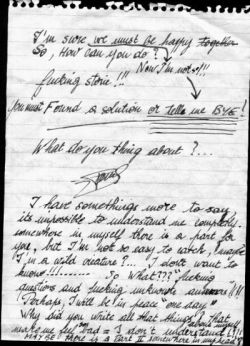 I'm sure we must be happy together
So, How can you do?
Now I'm not!!!
fucking storie!!!
you must Found a solution or tell me BYE!
What do you thing about?...
I have somethings more to say
its impossible to understand me completly.
somewhere in myself there is a part for
you, but I'm not so easy to catch, maybe
I'm a wild creature?... I don't want to
know!!!........ So What??? "fucking
questions and fucking unknown answers"!!!
Perhaps, I will be in peace "one day"
Why did you write all that things about myself
make me feel bad = I don't understand!!!
MAYBE there is a tare somewhere in my head?